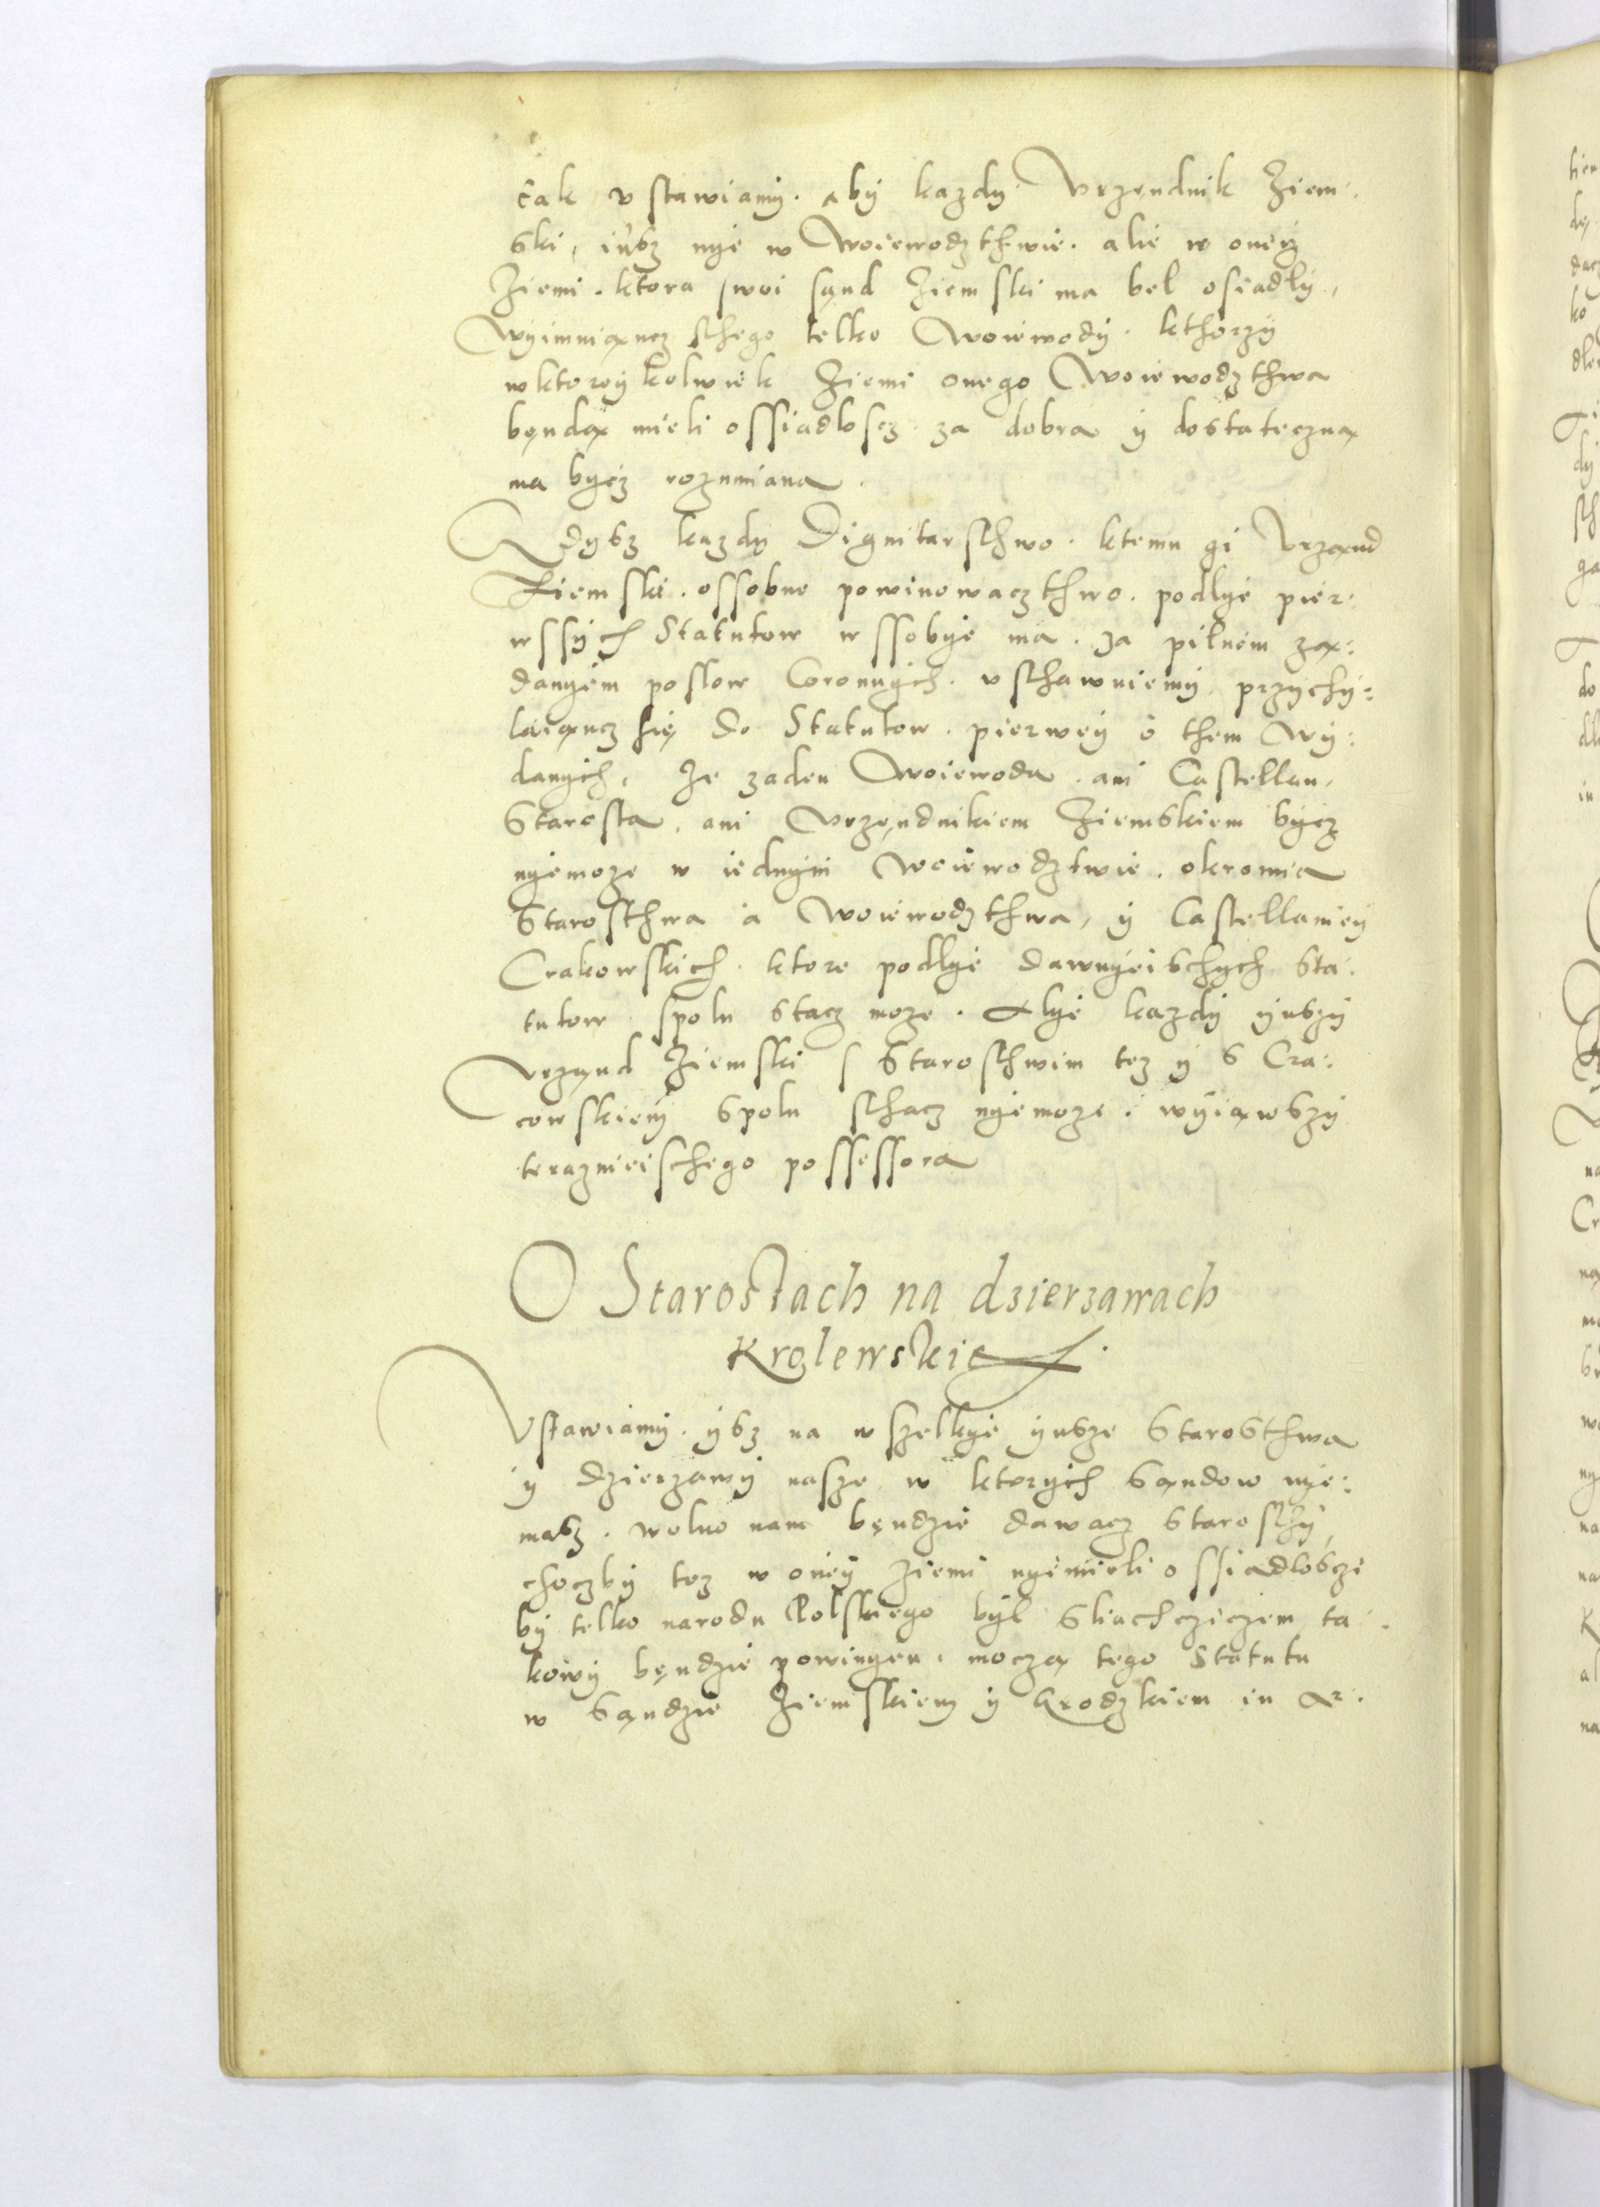 tak vstawiamÿ. abÿ kazdÿ Vrzęndnik Ziem-
ski, iusz nÿe w Woiewodzthwie. alie w oneÿ
Ziemi. ktora swoi sąnd Ziemski ma bel osiadlÿ,
Wÿimniąncz sthego telko Woiewodÿ. kthorzÿ
wktoreÿ kolwiek Ziemi onego Woiewodzthwa
bęndą mieli ossiadloscz. za dobra ÿ dostateczną
ma bÿcz rozumiana.
Gdÿsz kazdÿ Dignitarsthwo. ktemu gi Vrząnd
Ziemski. ossobne powinowaczthwo. podlÿe pier-
wssÿch Statutow wssobÿe ma. za pilnem zą-
danÿem poslow Coronnÿch. vsthawuiemÿ. przÿchÿ-
laiąncz się do Statutow. pierweÿ o them wÿ-
danÿch, ze zaden Woiewoda. ani Castellan,
Starosta. ani Vrzęndnikiem Ziemskiem bÿcz
nÿemoze w iednÿm Woiewodztwie. okromia
Starosthwa a Woiewodzthwa, ÿ Castellanieÿ
Crakowskich. ktore podlÿe dawnÿeischÿch sta-
tutow spolu stacz moze. Alÿe kazdÿ ÿnszÿ
Vrząnd Ziemski s Staroschwim tez ÿ s Cra-
cowskiem spolu sthacz nÿemoze. wÿiąwszÿ
terazniieischego possessora
O Starostach na dzierzawach
Krolewskich.
Vstawiamÿ. ÿsz na wszelkÿe ÿnsze Starosthwa
ÿ dzierzawÿ nasze w ktorÿch sąndow nÿe-
masz. wolno nam bęndzie dawacz Starosthÿ,
choczbÿ tez w oneÿ Ziemi nÿemieli ossiadlosczi
bÿ telko narodu Polskiego bÿl sliachcziczem ta-
kowÿ bęndzie powinÿen. moczą tego Statutu
w sąndzie Ziemskiem ÿ Grodzkiem in ar-